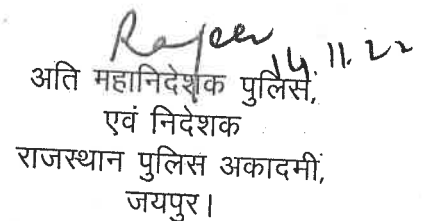 14.11.22
अति महानिदेशक पुलिस,
एवं निदेशक
राजस्थान पुलिस अकादमी,
जयपुर।